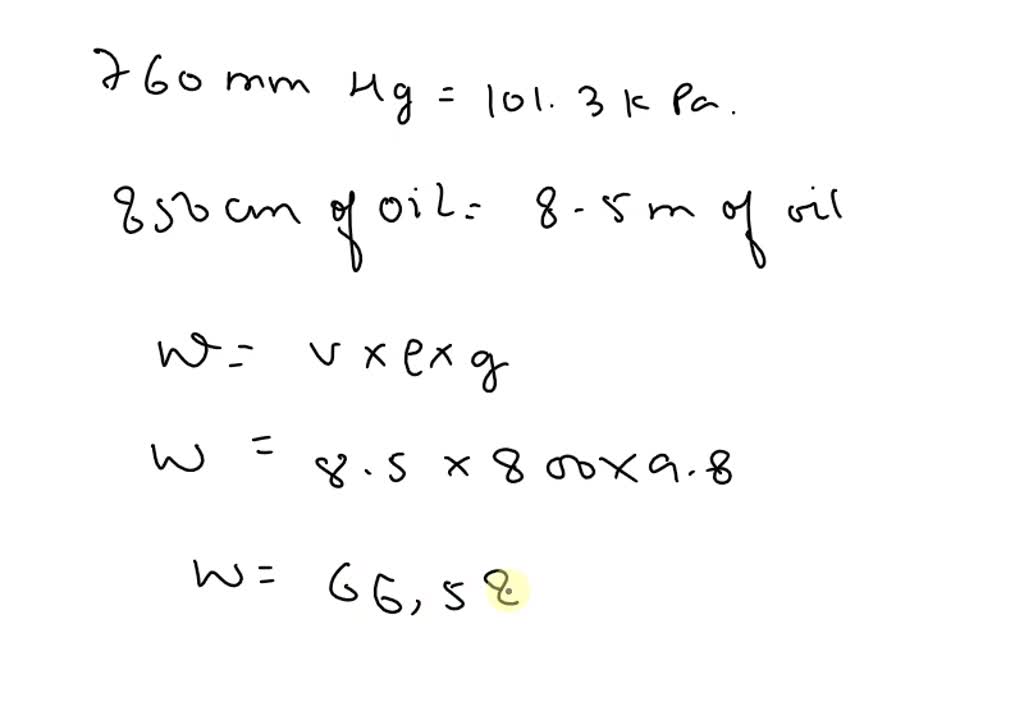 760 mm Hg = 101.3 k Pa.
850 cm of oil = 8.5 m of oil
W = v × ρ × g
W = 8.5 × 800 × 9.8
W = 66,58